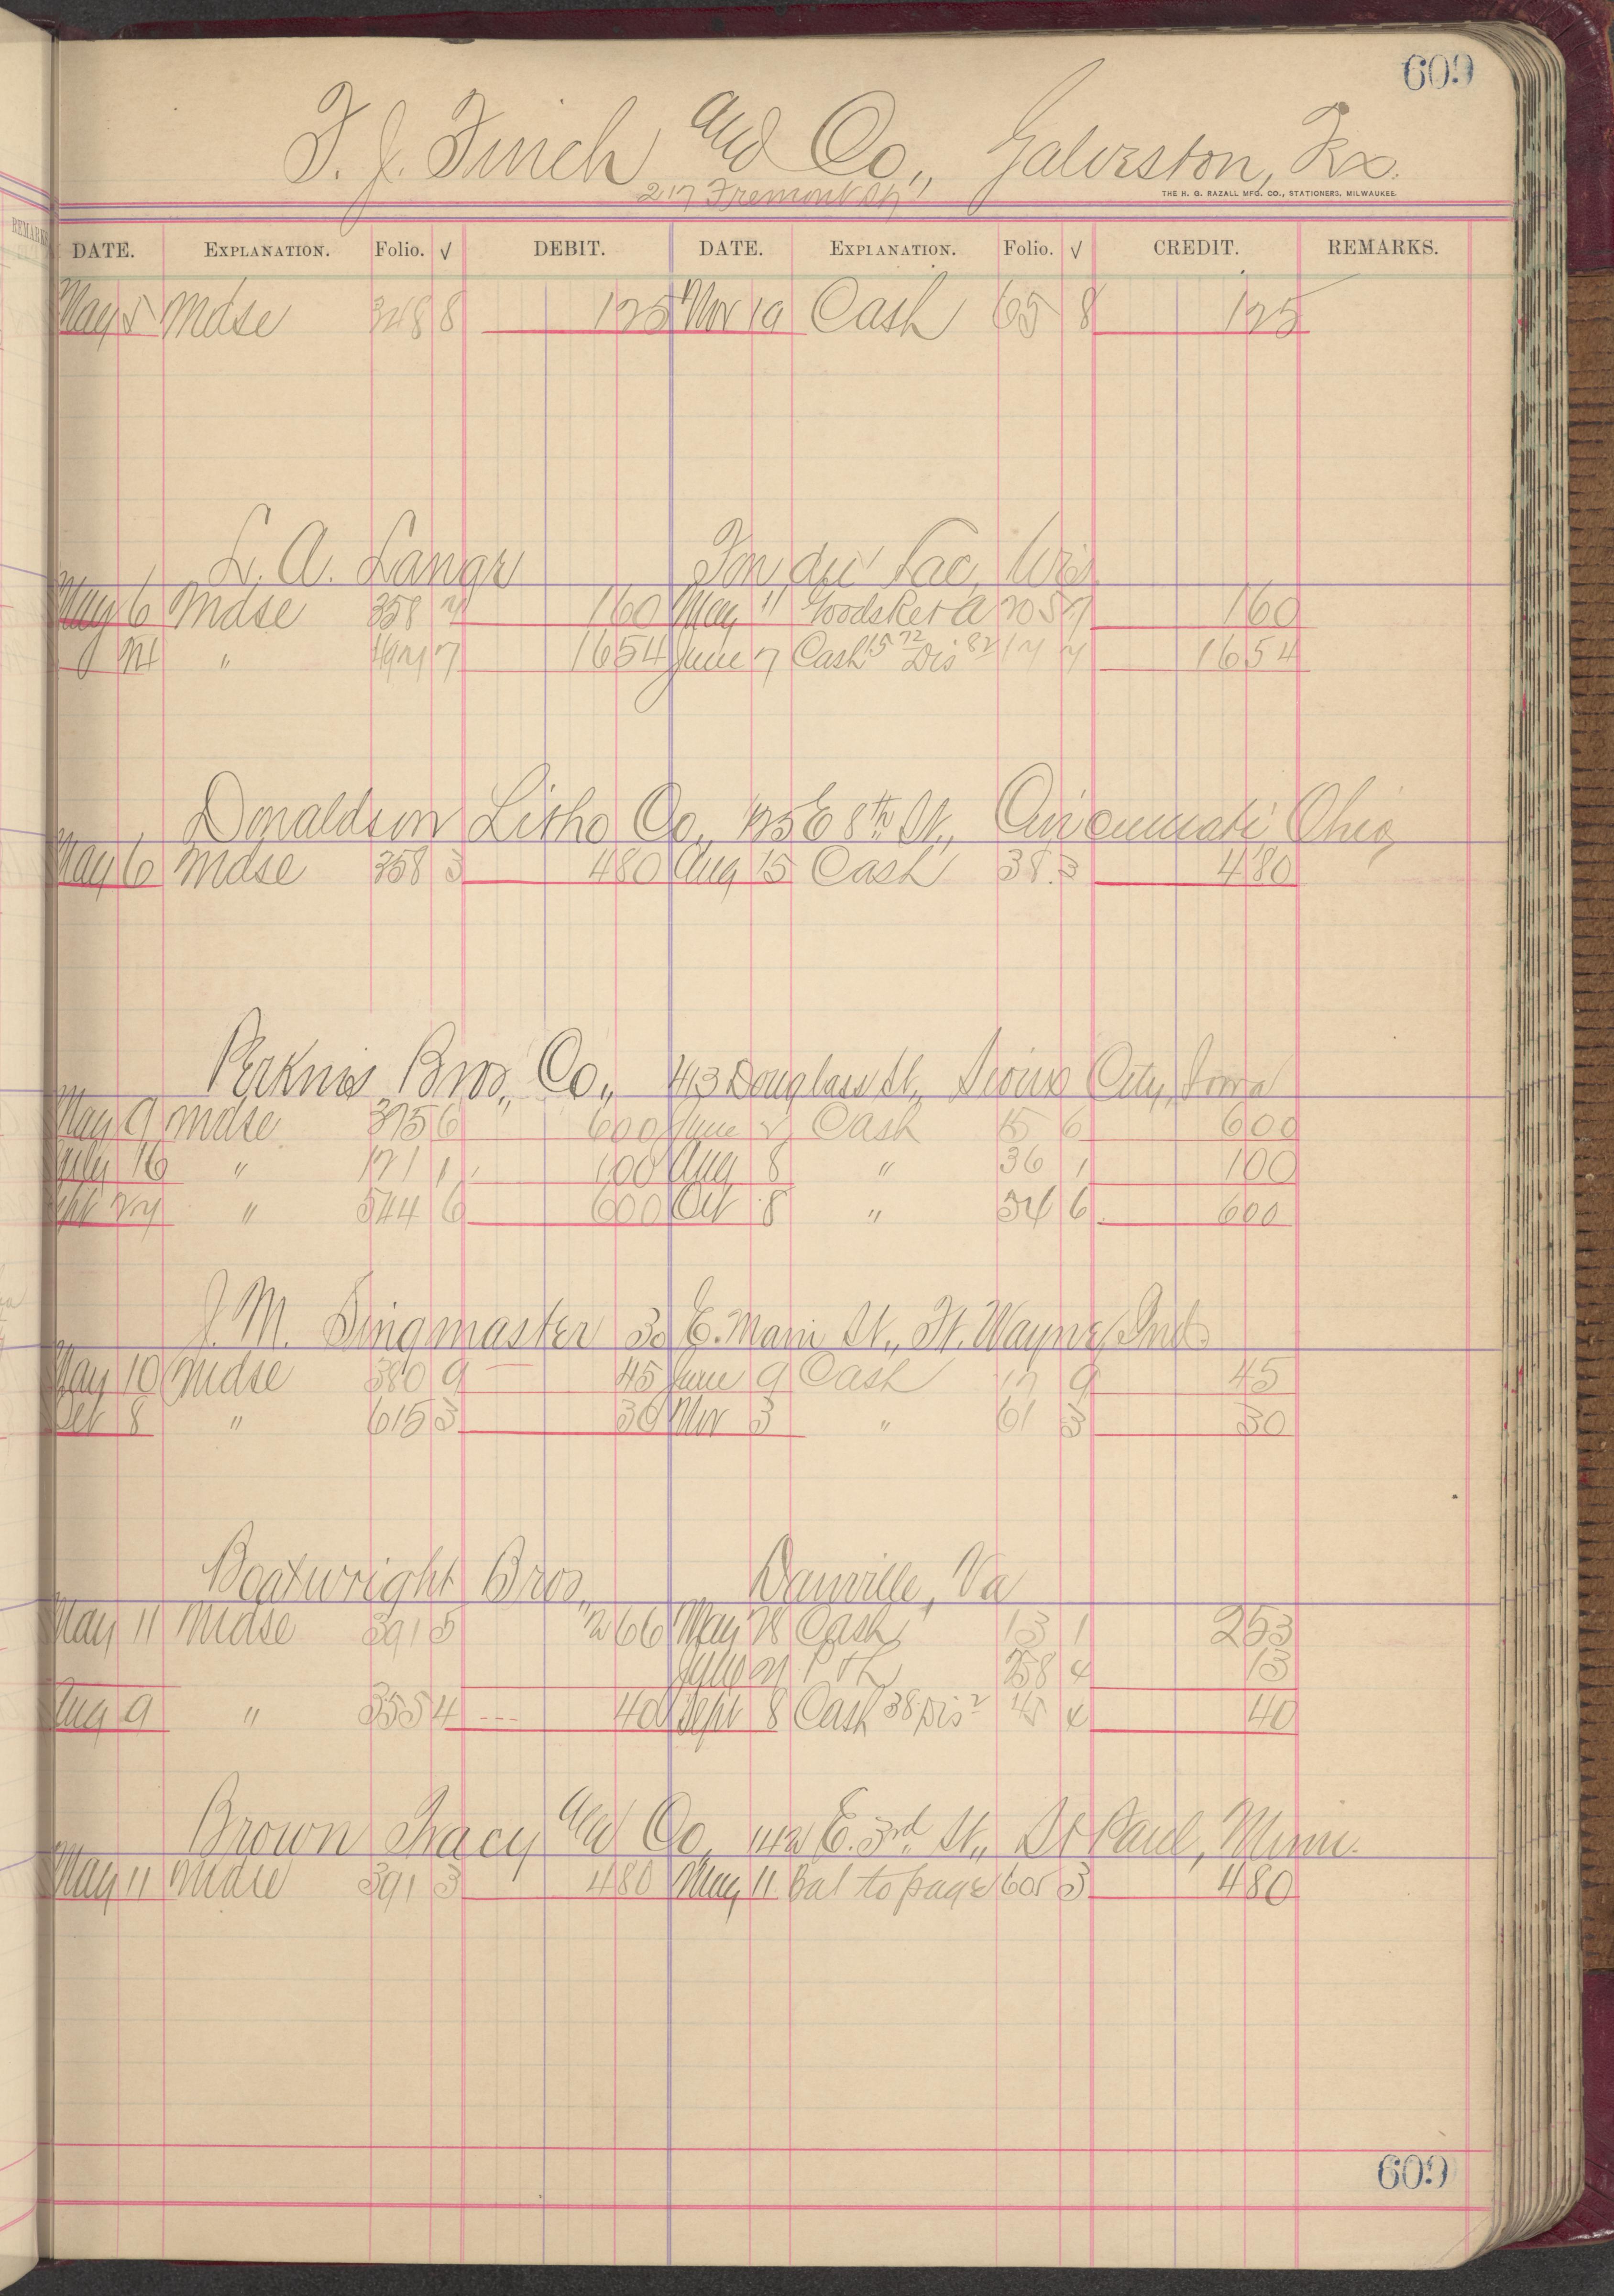 609
F. J. Finch and Co., Galveston, Tex.
217 Fremont St
THE H. G. RAZALL MFG. CO., STATIONERS, MILWAUKEE.
DATE. EXPLANATION. Folio. √ DEBIT. DATE. EXPLANATION. Folio. √ CREDIT. REMARKS.
May 5 Mdse 348 8 125 Nov 19 Cash 65 8 125
L. A. Lange Fon du Lac, Wis
May 6 Mdse 358 7 160 May 11 Goods Ret a 205 7 160
" 7 1654 June 7 Cash 15 72 Dis 82 17 7 1654
Donaldson Litho Co., 125 E 8th St., Cincinnati Ohio
May 6 Mdse 358 3 480 Aug 15 Cash 38 3 480
Perkins Bros., Co., 413 Douglass St., Sioux City, Iowa
May 9 Mdse 375 6 600 June 2 Cash 15 6 600
July 16 " 171 1 100 Aug 8 " 36 1 100
Sept 27 " 544 6 600 Oct 8 " 54 6 600
J. M. Singmaster 30 E. Main St., Ft. Wayne, Ind.
May 10 Mdse 380 9 45 June 9 Cash 17 9 45
Oct 8 " 615 3 30 Nov 3 " 61 3 30
Boatwright Bros., Danville, Va
May 11 Mdse 391 5 266 May 28 Cash 13 1 253
July 21 P & L 258 4 13
Aug 9 " 355 4 40 Sept 8 Cash 38 Dis 2 45 4 40
Brown Tracy and Co., 142 E. 3rd St., St Paul, Minn.
May 11 Mdse 391 3 480 May 11 Bal to page 605 3 480
609